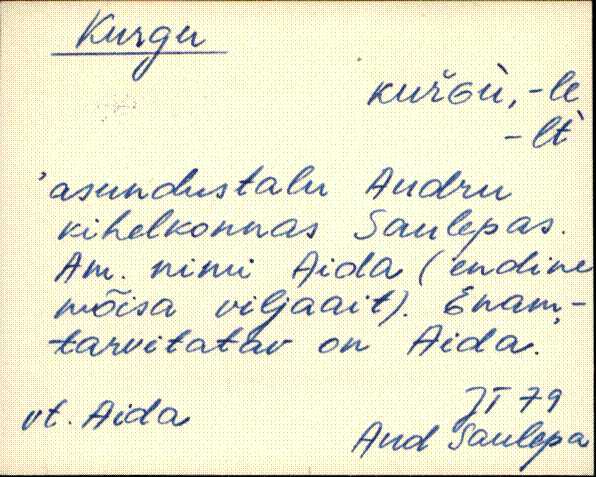 Kurgu
kuřGù, -le
-lt̀
'asundustalu Audru
kihelkonnas Saulepas.
Am. nimi Aida (endine
mõisa viljaait). Enam-
tarvitatav on Aida.'
vt. Aida
JT 79
Aud Saulepa